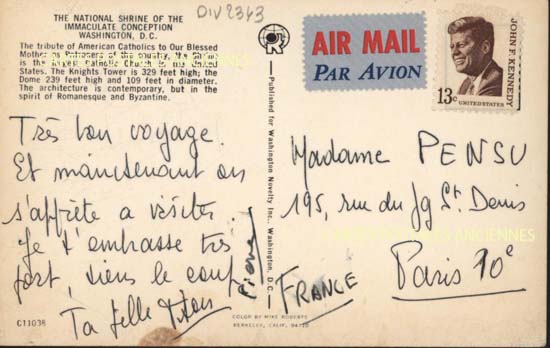 THE NATIONAL SHRINE OF THE
IMMACULATE CONCEPTION
WASHINGTON, D.C.
The tribute of American Catholics to Our Blessed
Mother as Patroness of the country, the Shrine
is the largest Catholic Church in the United
States. The Knights Tower is 329 feet high; the
Dome 239 feet high and 109 feet in diameter.
The architecture is contemporary, but in the
spirit of Romanesque and Byzantine.
DIV2363
Très bon voyage.
Et maintenant on
s'apprète a visiter.
Je t'embrasse très
fort, tiens le coup
Ta fille
C11038
R
Published for Washington Novelty Inc., Washington, D.C.
COLOR BY MIKE ROBERTS
BERKELEY, CALIF. 94710
AIR MAIL
PAR AVION
JOHN F. KENNEDY
13c
UNITED STATES
Madame PENSU
195, rue du Fg St. Denis
Paris 10e
FRANCE
CARTES POSTALES ANCIENNES